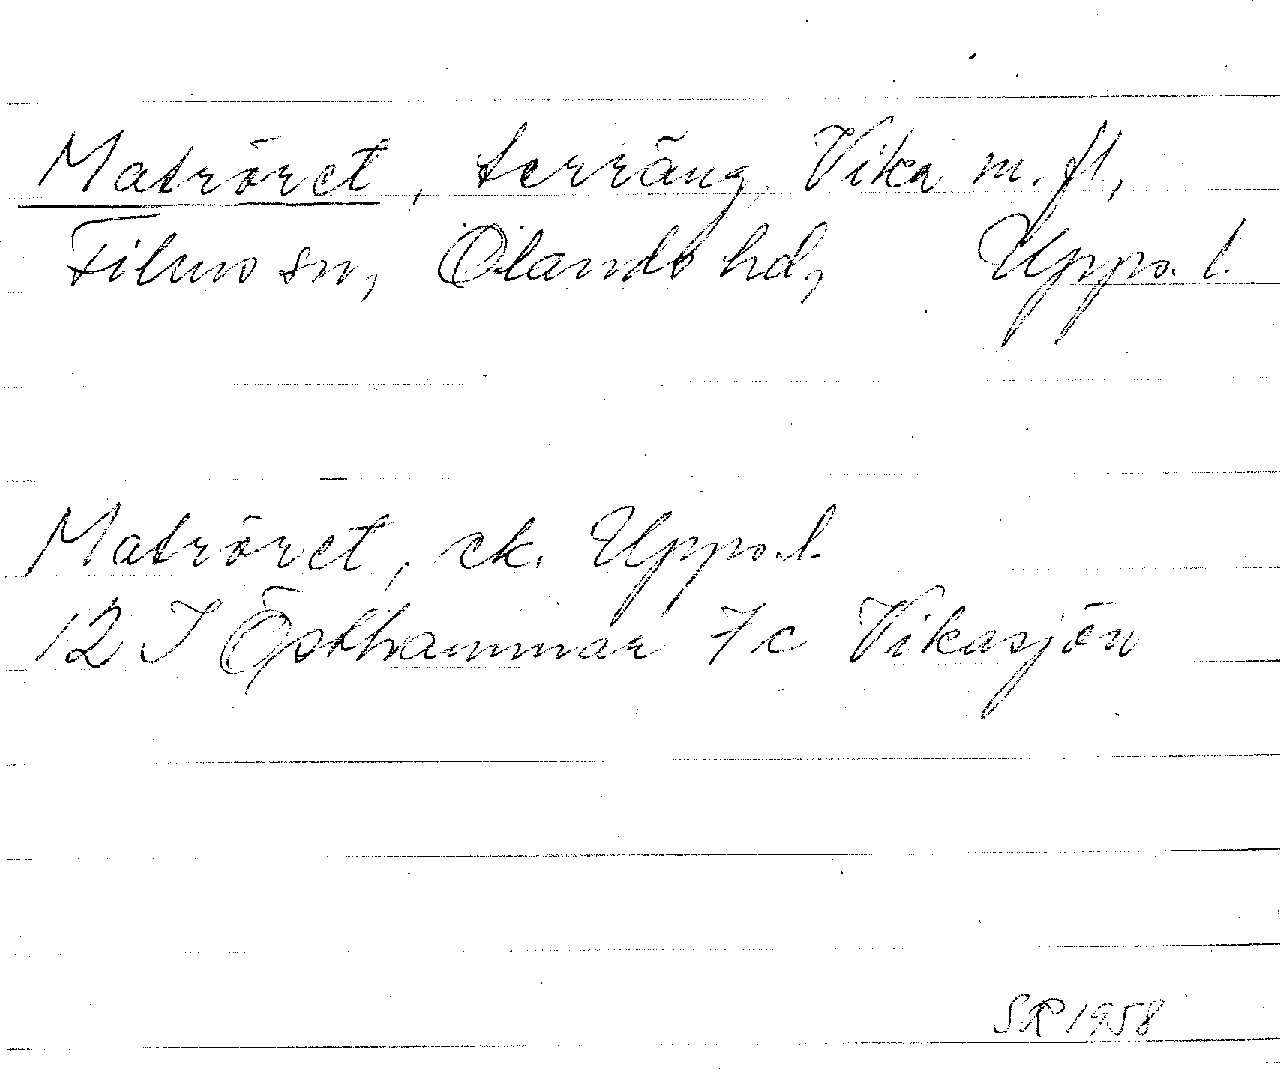 Matröret, terräng, Vika m. fl,
Films sn, Olands hd, Upps. l.
Matröret, ek. Upps. l.
12 I Östhammar 7c Vikasjön
SR 1958